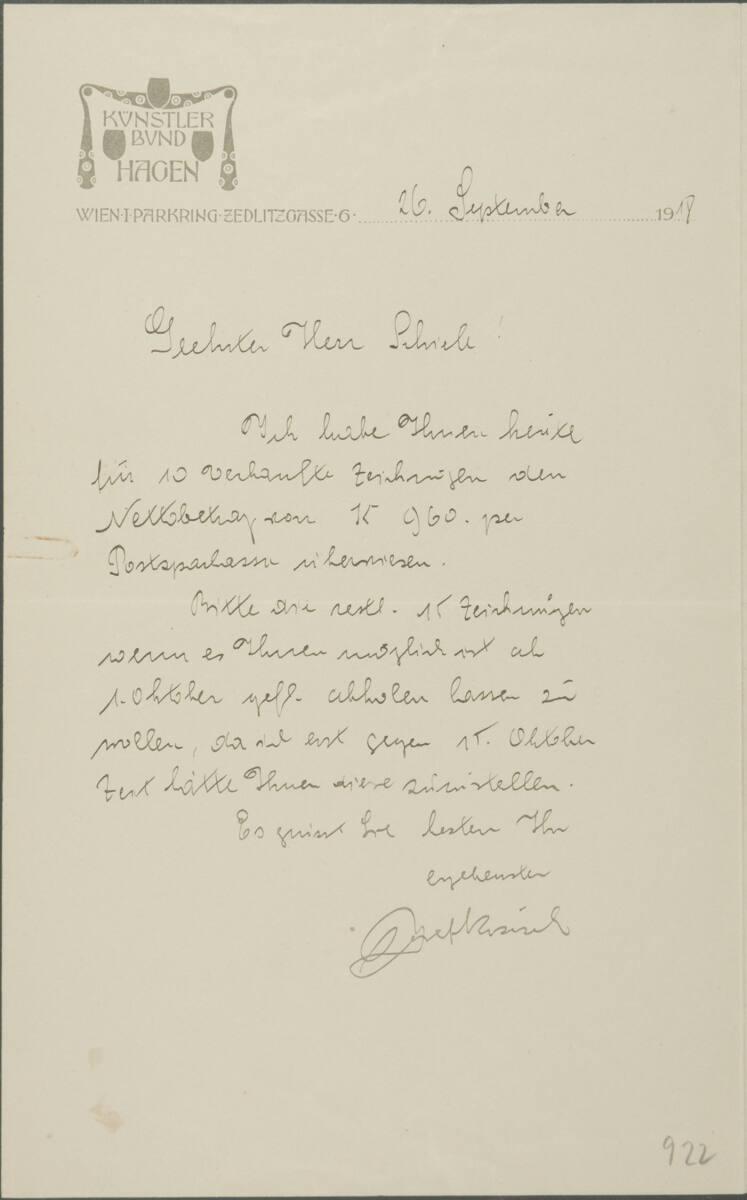 KÜNSTLER
BUND
HAGEN
WIEN·I·PARKRING·ZEDLITZGASSE·6· 26. September 1918
Geehrter Herr Schiele!
Ich habe Ihnen heute
für 10 verkaufte Zeichnungen den
Nettobetrag von K 960. per
Postsparkasse überwiesen.
Bitte die restl. 15 Zeichnungen
wenn es Ihnen möglich ist ab
1. Oktober gefl. abholen lassen zu
wollen, da ich erst gegen 15. Oktober
Zeit hätte Ihnen diese zuzustellen.
Es grüsst Sie bestens Ihr
ergebenster
Josef
922